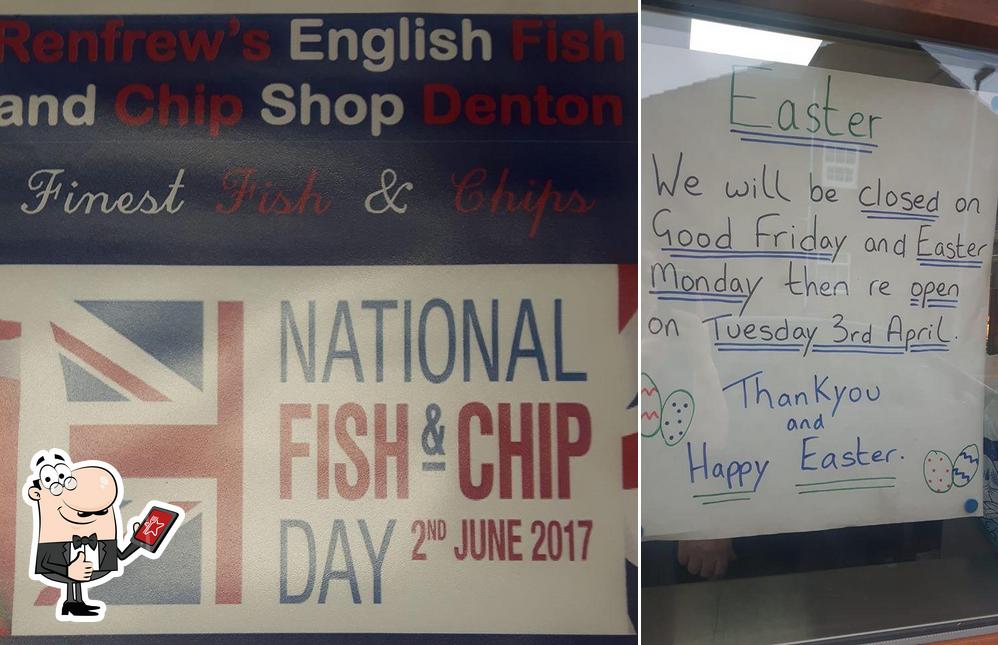 Renfrew's English Fish
and Chip Shop Denton
Finest Fish & Chips
NATIONAL
FISH & CHIP
DAY 2ND JUNE 2017
Easter
We will be closed on
Good Friday and Easter
Monday then re open
on Tuesday 3rd April.
Thankyou
and
Happy Easter.